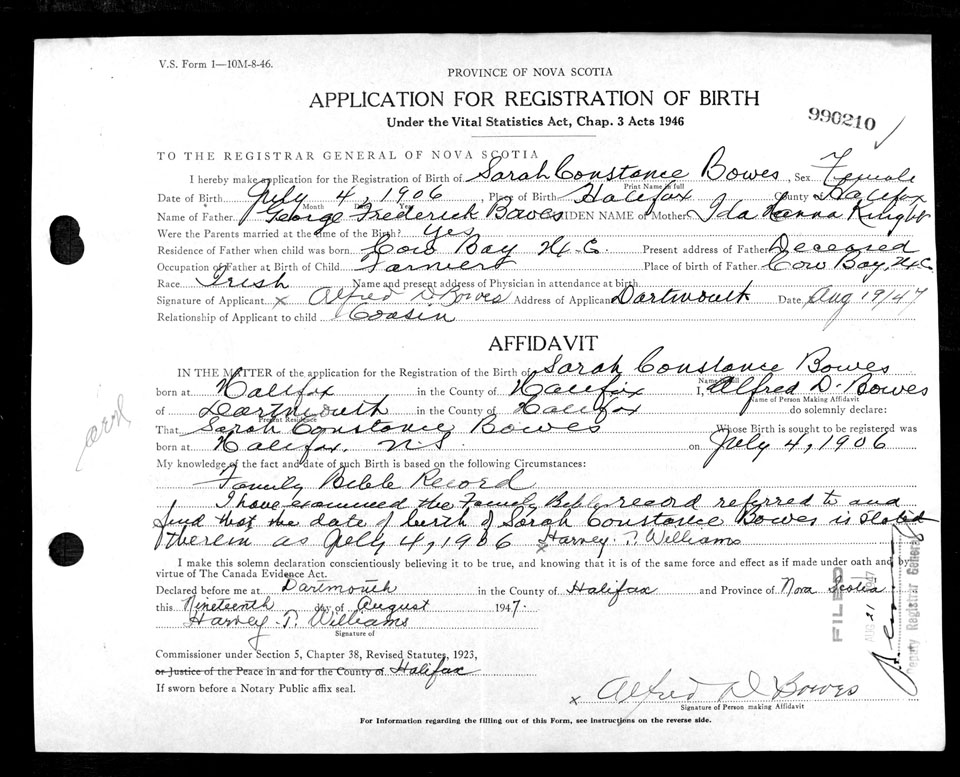 V.S. Form 1—10M-8-46.
PROVINCE OF NOVA SCOTIA
APPLICATION FOR REGISTRATION OF BIRTH
990210
Under the Vital Statistics Act, Chap. 3 Acts 1946
TO THE REGISTRAR GENERAL OF NOVA SCOTIA
I hereby make application for the Registration of Birth of Sarah Constance Bowes, Sex Female
Print Name in full
Date of Birth July 4, 1906, Place of Birth Halifax County Halifax
Month Day Year
Name of Father George Frederick Bowes MAIDEN NAME of Mother Ida Hanna Knight
Were the Parents married at the time of the Birth? Yes
Residence of Father when child was born Cow Bay Hx. C. Present address of Father Deceased
Occupation of Father at Birth of Child Farmer Place of birth of Father Cow Bay, Hx C.
Race Irish Name and present address of Physician in attendance at birth
Signature of Applicant x Alfred D. Bowes Address of Applicant Dartmouth Date Aug 19/47
Relationship of Applicant to child Cousin
AFFIDAVIT
IN THE MATTER of the application for the Registration of the Birth of Sarah Constance Bowes
Name in full
born at Halifax in the County of Halifax I, Alfred D. Bowes
Name of Person Making Affidavit
of Dartmouth in the County of Halifax do solemnly declare:
Present Residence
That Sarah Constance Bowes Whose Birth is sought to be registered was
born at Halifax, N.S. on July 4, 1906
My knowledge of the fact and date of such Birth is based on the following Circumstances:
Family Bible Record
I have examined the Family Bible record referred to and
find that the date of birth of Sarah Constance Bowes is stated
therein as July 4, 1906 x Harvey T. Williams
I make this solemn declaration conscientiously believing it to be true, and knowing that it is of the same force and effect as if made under oath and by
virtue of The Canada Evidence Act.
Declared before me at Dartmouth in the County of Halifax and Province of Nova Scotia
this Nineteenth day of August 1947.
Harvey T. Williams
Signature of
Commissioner under Section 5, Chapter 38, Revised Statutes, 1923,
or Justice of the Peace in and for the County of Halifax
If sworn before a Notary Public affix seal.
x Alfred D Bowes
Signature of Person making Affidavit
For Information regarding the filling out of this Form, see instructions on the reverse side.
FILED
AUG 21 1947
Deputy Registrar General